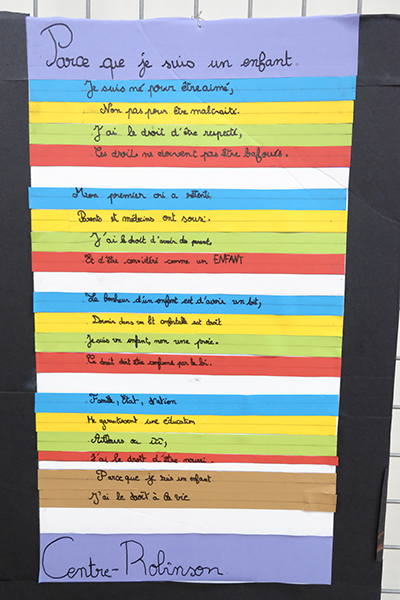 Parce que je suis un enfant.
Je suis né pour être aimé,
Non pas pour être maltraité.
J'ai le droit d'être respecté,
Ces droit ne doivent pas être bafoués.
Mon premier cri a retenti
Parents et médecins ont souri.
J'ai le droit d'avoir de parent,
Et d'être considéré comme un ENFANT
Le bonheur d'un enfant est d'avoir un toit,
Dormir dans un lit confortable est droit
Je suis un enfant, non une proie.
Ce droit doit être confirmé par la loi.
Famille, Etat, Nation
Me garantissent une éducation
Ailleurs ou ici,
J'ai le droit d'être nourri.
Parce que je suis un enfant.
J'ai le droit à la vie
Centre-Robinson